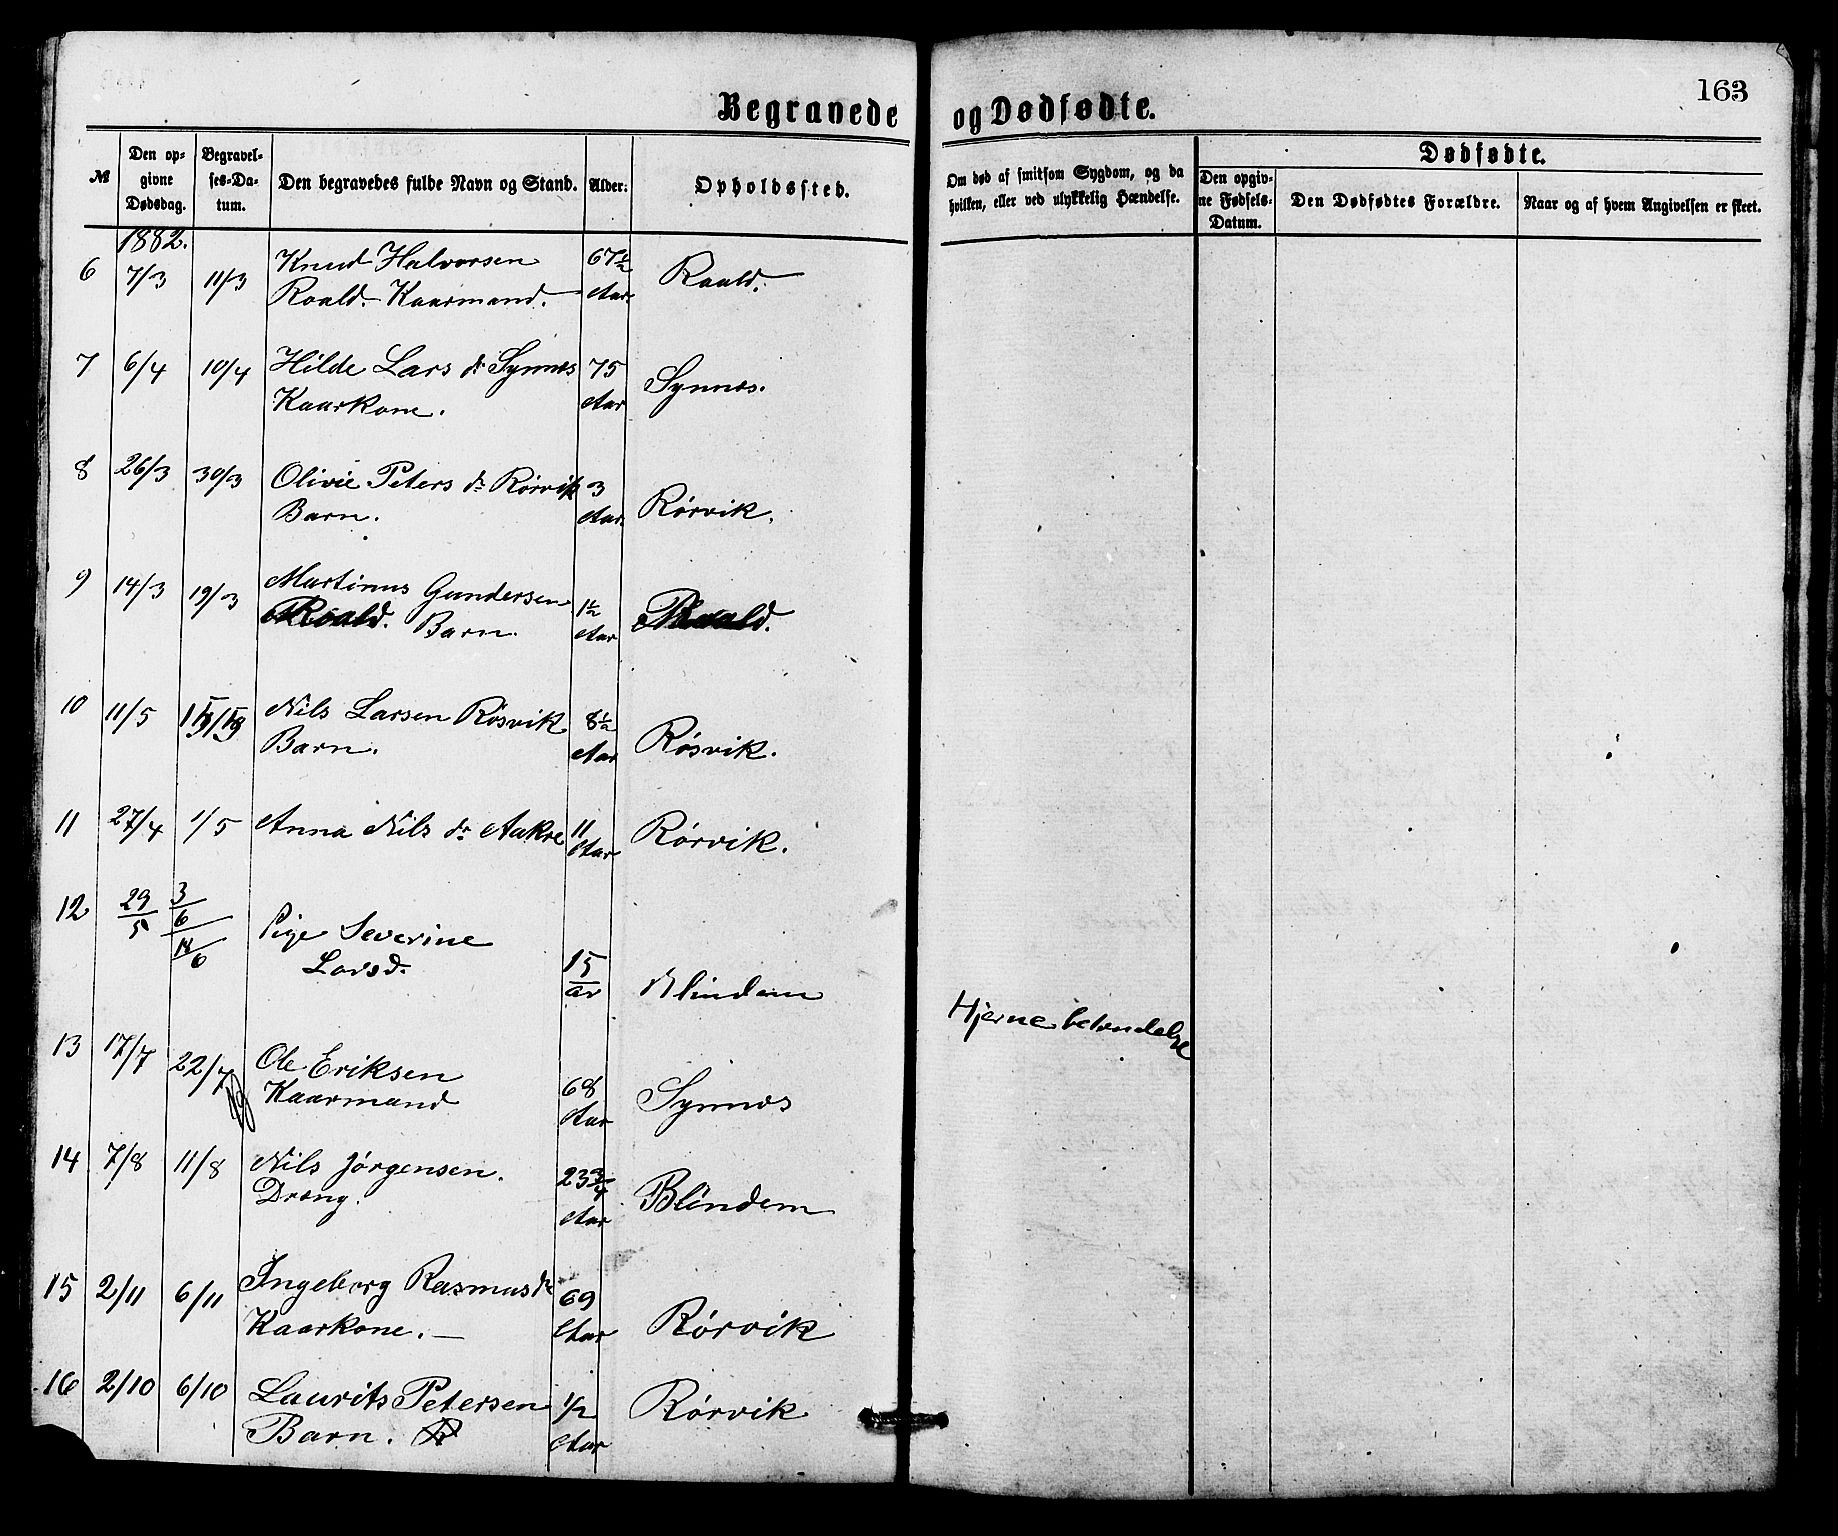 163
Begravede og Dødfødte.
№
Den opgivne Dødsdag.
Begravelses-Datum.
Den begravedes fulde Navn og Stand.
Alder:
Opholdssted.
Om død af smitsom Sygdom, og da hvilken, eller ved ulykkelig Hændelse.
Dødfødte.
Den opgivne Fødsels-Datum.
Den Dødfødtes Forældre.
Naar og af hvem Angivelsen er skeet.
1882.
6 7/3 11/3 Knud Halvorsen 67½ Roald.
Roald. Kaarmand. Aar.
7 6/4 10/4 Hilde Lars dr Synnes 75 Synnes.
Kaarkone. Aar
8 26/3 30/3 Olivie Peters dr Rørvik 3 Rørvik.
Barn. Aar.
9 14/3 19/3 Martinus Gundersen 1½ Roald.
Roald. Barn. Aar
10 11/5 Nils Larsen Røsvik 8½ Røsvik.
Barn. Aar
11 27/4 1/5 Anna Nils dr Aakre 11 Rørvik.
Aar
12 29/5 3/6 Pige Severine
Larsd. 15 ar Blindem Hjernebetændelse
13 17/7 22/7 Ole Eriksen 68 Synnes
Kaarmand Aar
14 7/8 11/8 Nils Jørgensen. 23¾ Blindem
Dreng. Aar
15 2/11 6/11 Ingeborg Rasmusdr 69 Rørvik
Kaarkone. Aar
16 2/10 6/10 Laurits Petersen ½ Rørvik
Barn. Aar